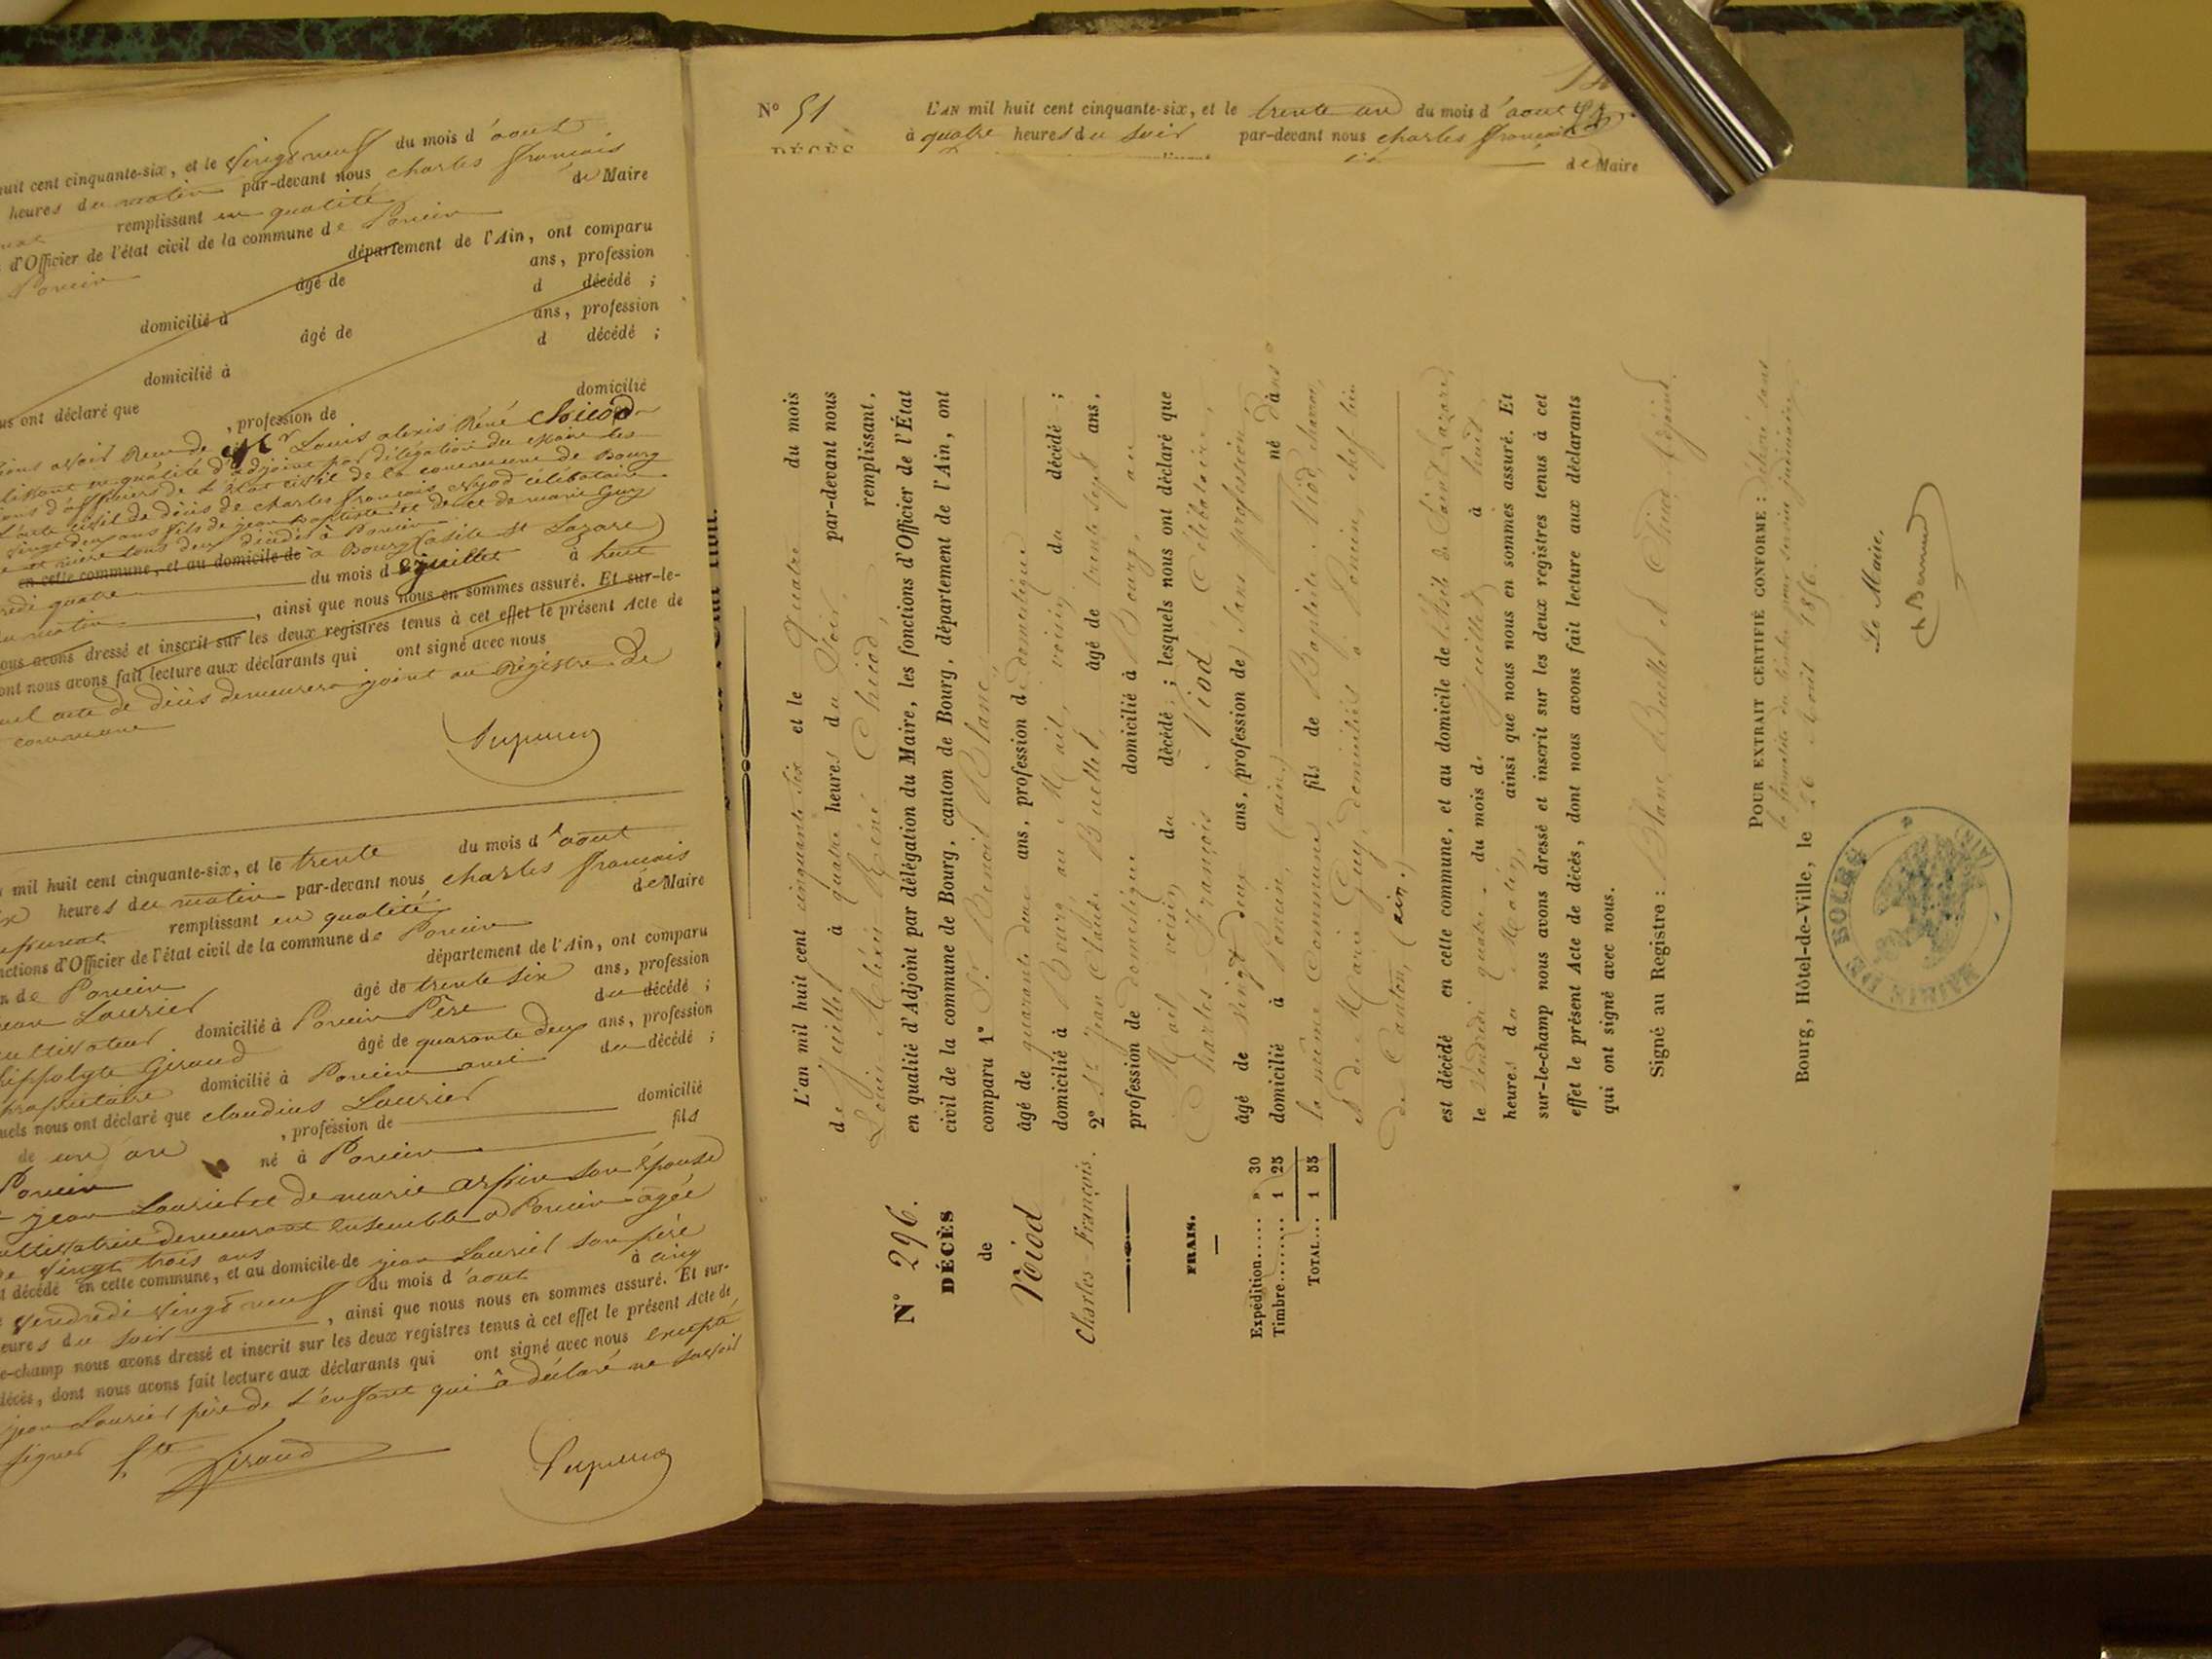 huit cent cinquante-six, et le vingt neuf du mois d'aout
heures du matin par-devant nous charles francois
remplissant en qualité de Maire
d'Officier de l'état civil de la commune de Poncin
Poncin département de l'Ain, ont comparu
âgé de ans, profession
domicilié à d décédé ;
âgé de ans, profession
domicilié à d décédé ;
us ont déclaré que
, profession de domicilié
avoir Reçu de Mr Louis alexis Réné Chicod
en qualité d'adjoint par délégation du Maire les
d'officier de l'état civil de la commune de Bourg
L'acte civil de décès de charles francois Nyod célibataire
vingt deux ans fils de jean Baptiste et de marie Guy
et mère tous deux décédés à Poncin
en cette commune, et au domicile de à Bourg (asile St Lazare)
redi quatre du mois de juillet à huit
du matin , ainsi que nous nous en sommes assuré. Et sur-le-
nous avons dressé et inscrit sur les deux registres tenus à cet effet le présent Acte de
dont nous avons fait lecture aux déclarants qui ont signé avec nous
quel acte de décès demeurera joint au Régistre de
commune
mil huit cent cinquante-six, et le trente du mois d'aout
heures du matin par-devant nous charles francois
remplissant en qualité de Maire
nctions d'Officier de l'état civil de la commune de Poncin
n de Poncin département de l'Ain, ont comparu
jean Laurier âgé de trente six ans, profession
cultivateur domicilié à Poncin Père du décédé ;
hippolyte Giraud âgé de quarante deux ans, profession
propriétaire domicilié à Poncin ami du décédé ;
quels nous ont déclaré que claudius Laurier
, profession de domicilié
de un an né à Poncin fils
Poncin
jean Laurier et de marie son épouse
cultivatrice demeurant ensemble à Poncin agée
de vingt trois ans
décédé en cette commune, et au domicile de jean Laurier son père
vendredi vingt neuf du mois d'aout à cinq
heures du soir , ainsi que nous nous en sommes assuré. Et sur-
le-champ nous avons dressé et inscrit sur les deux registres tenus à cet effet le présent Acte de
décès, dont nous avons fait lecture aux déclarants qui ont signé avec nous excepté
jean Laurier père de l'enfant qui a déclaré ne savoir
signer
Giraud
N° 51 L'AN mil huit cent cinquante-six, et le trente un du mois d'aout
à quatre heures du soir par-devant nous charles francois
DÉCÈS de Maire
N° 296.
DÉCÈS
de
Niod
Charles-François.
FRAIS.
Expédition..... » 30
Timbre........ 1 25
TOTAL... 1 55
L'an mil huit cent cinquante six et le Quatre du mois
de Juillet à quatre heures du Soir, par-devant nous
Louis Alexis Réné Chicod, remplissant,
en qualité d'Adjoint par délégation du Maire, les fonctions d'Officier de l'État
civil de la commune de Bourg, canton de Bourg, département de l'Ain, ont
comparu 1° Sr. Benoit Blanc,
âgé de quarante deux ans, profession de domestique
domicilié à Bourg, au Mail, voisin du décédé ;
2° Sr Jean Claude Buellet, âgé de trente sept ans,
profession de domestique domicilié à Bourg, au
Mail voisin du décédé ; lesquels nous ont déclaré que
Charles-François Niod, Célibataire,
âgé de vingt deux ans, (profession de) Sans profession,
domicilié à Poncin, (ain.) né dans
la même Commune, fils de Baptiste Niod, charron,
et de Marie Guy, domiciliés à Poncin, chef-lieu
de Canton, (ain.)
est décédé en cette commune, et au domicile de l'Asile de Saint Lazare,
le Vendredi quatre du mois de Juillet à huit
heures du Matin, ainsi que nous nous en sommes assuré. Et
sur-le-champ nous avons dressé et inscrit sur les deux registres tenus à cet
effet le présent Acte de décès, dont nous avons fait lecture aux déclarants
qui ont signé avec nous.
Signé au Registre : Blanc, Buellet et Adjoint.
POUR EXTRAIT CERTIFIÉ CONFORME : délivré sans
la formalité du timbre pour service
Bourg, Hôtel-de-Ville, le 26 Août 1856.
Le Maire,
MAIRIE DE BOURG (AIN)